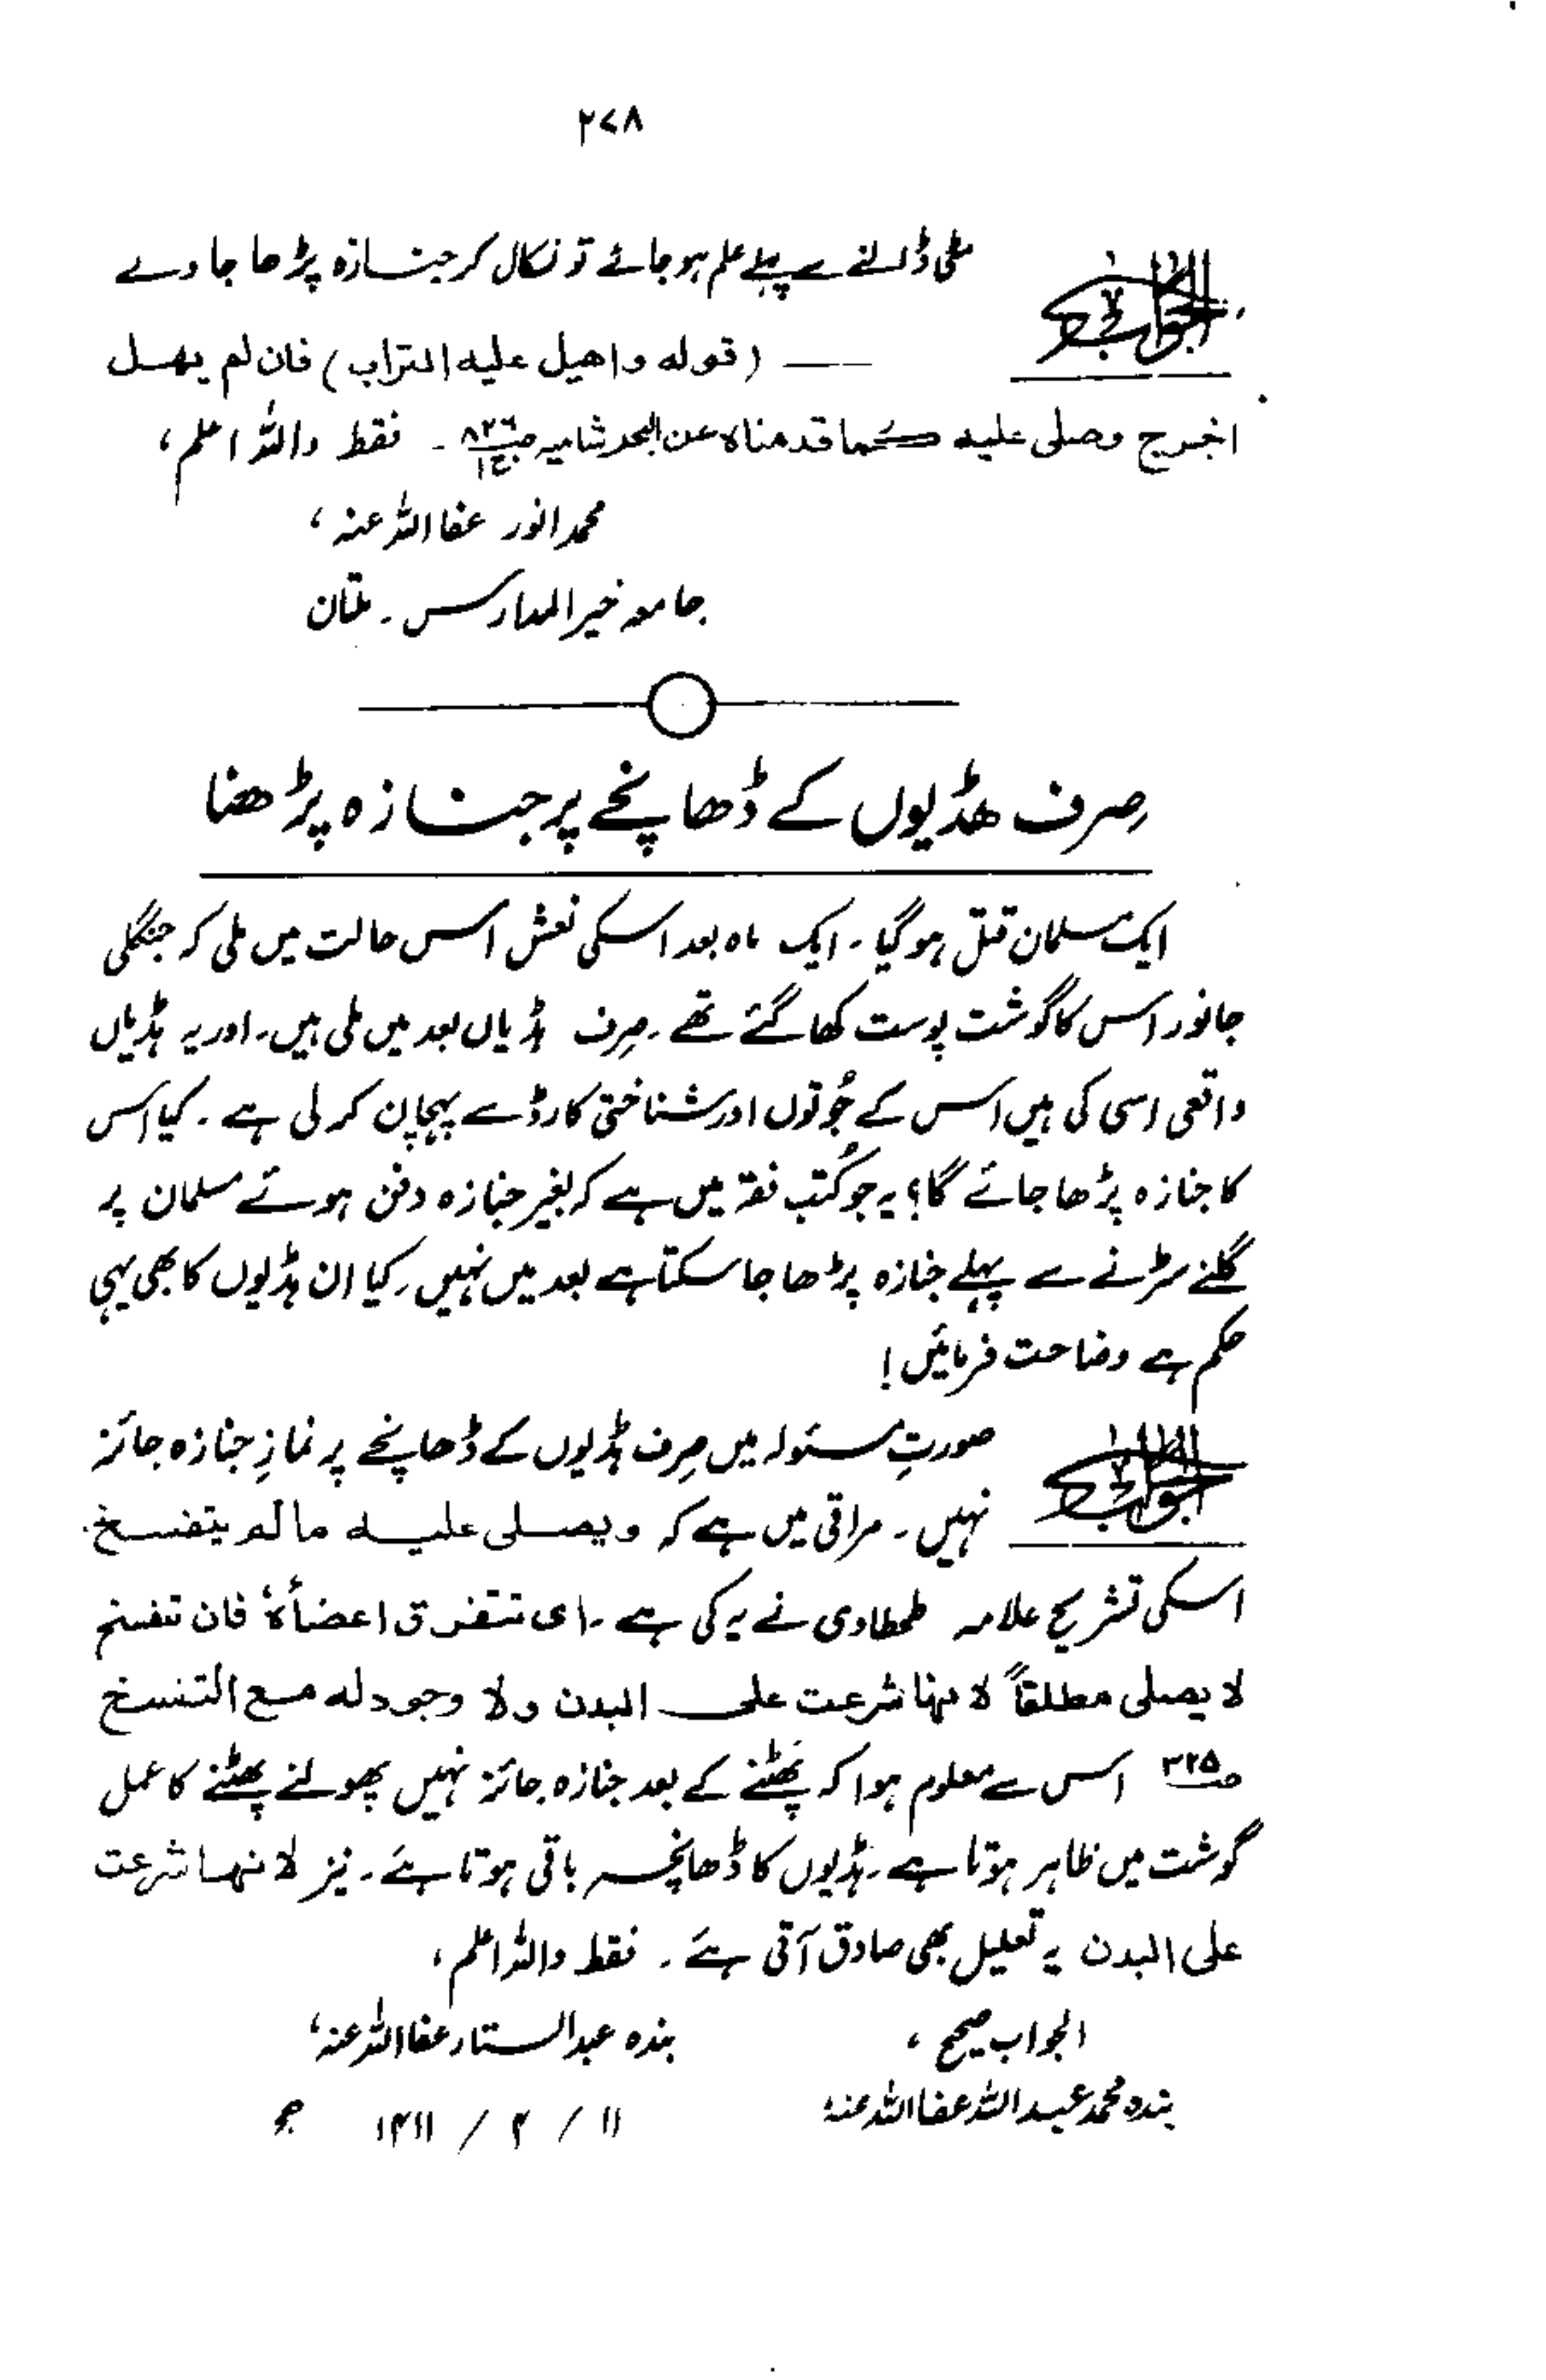 ۲۷۸
الجواب
مٹی ڈالنے سے پہلے علم ہو جائے تو نکال کر جنازہ پڑھا جاوے
—— (قوله واهيل عليه التراب) فان لم يهل
اخرج وصلى عليه كما قدمناه عن البحر شاميه ص۸۲۶ ج۱ ۔ فقط واللہ اعلم ،
محمد انور عفا اللہ عنہ ،
جامعہ خیر المدارس ۔ ملتان
صِرف ھڈیوں کے ڈھانچے پر جنازہ پڑھنا
ایک مسلمان قتل ہو گیا ۔ ایک ماہ بعد اسکی نعش اس حالت میں ملی کہ جنگلی
جانور اس کا گوشت پوست کھا گئے تھے ۔ صِرف ہڈیاں بعد میں ملی ہیں ۔ اور یہ ہڈیاں
واقعی اسی کی ہیں اس کے جُوتوں اور شناختی کارڈ سے پہچان کر لی ہے ۔ کیا اس
کا جنازہ پڑھا جائے گا؟ یہ جو کُتب فقہ میں ہے کہ بغیر جنازہ دفن ہوئے مسلمان پر
گلنے سڑنے سے پہلے جنازہ پڑھا جا سکتا ہے بعد میں نہیں ۔ کیا ان ہڈیوں کا بھی یہی
حکم ہے وضاحت فرمائیں !
الجواب
صورتِ مسئولہ میں صِرف ہڈیوں کے ڈھانچے پر نمازِ جنازہ جائز
نہیں ۔ مراقی میں ہے کہ ويصلى عليه مالم يتفسخ ۔
اسکی تشریح علامہ طحطاوی نے یہ کی ہے ۔ اى تتفرق اعضأه فان تفسخ
لا يصلى مطلقاً لانها شرعت على البدن ولا وجود له مع التفسخ
ص۳۲۵ اس سے معلوم ہوا کہ پَھٹنے کے بعد جنازہ جائز نہیں پھولنے پھٹنے کا عمل
گوشت میں ظاہر ہوتا ہے ۔ ہڈیوں کا ڈھانچہ باقی ہوتا ہے ۔ نیز لانها شرعت
على البدن یہ تعلیل بھی صادق آتی ہے ۔ فقط واللہ اعلم ،
الجواب صحیح ، بندہ عبدالستار عفا اللہ عنہ ،
بندہ محمد عبداللہ عفا اللہ عنہ ۱۱ / ۲ / ۱۴۱۱ ھ